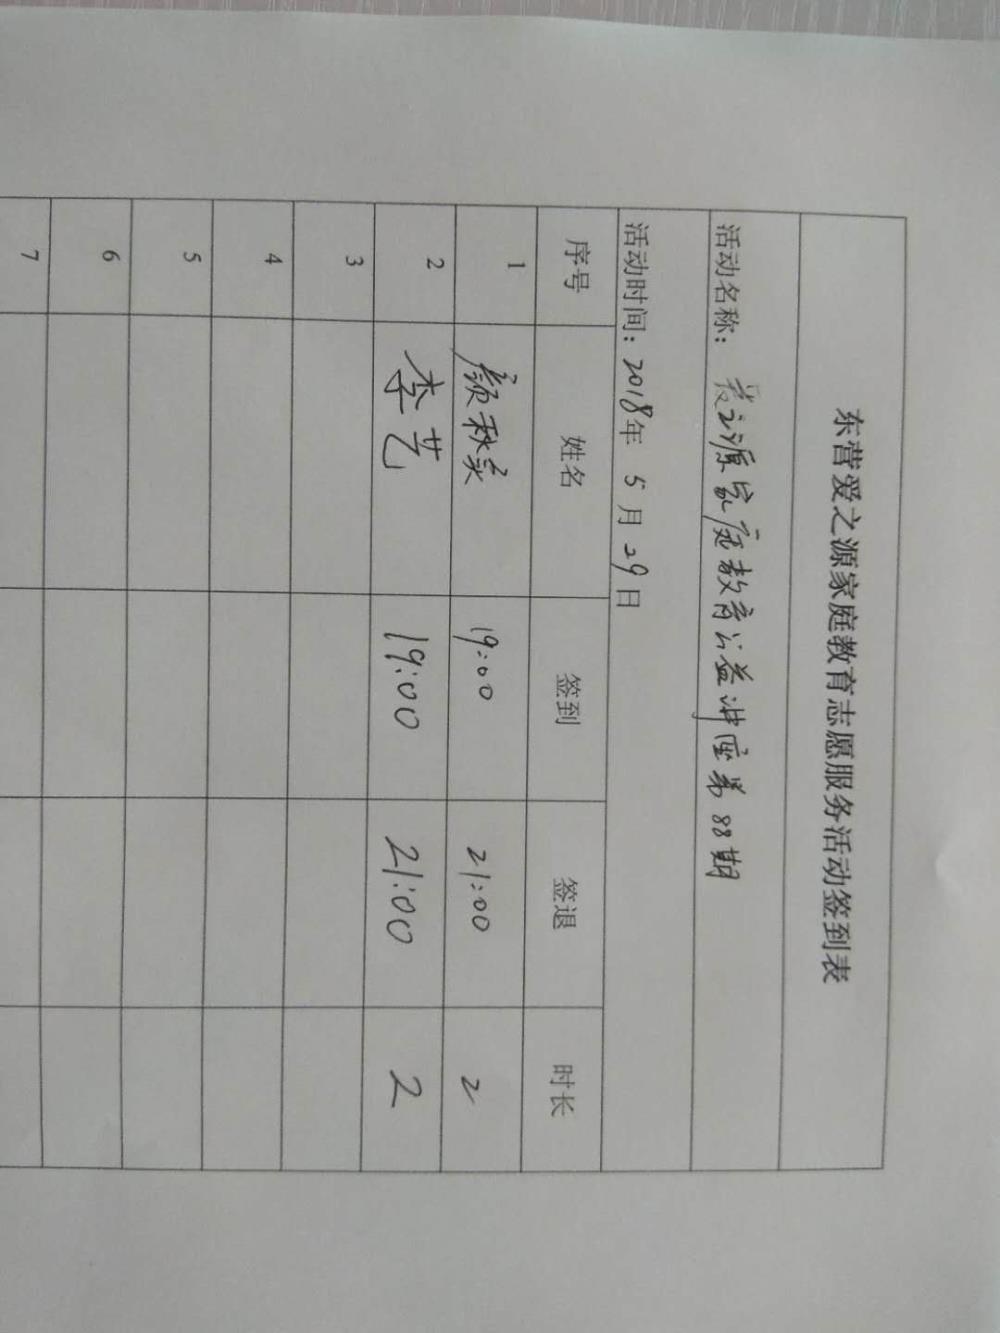 东营爱之源家庭教育志愿服务活动签到表
活动名称：爱之源家庭教育公益讲座第88期
活动时间：2018年 5月29日
序号 姓名 签到 签退 时长
1 颜秋 19:00 21:00 2
2 李艺 19:00 21:00 2
3
4
5
6
7